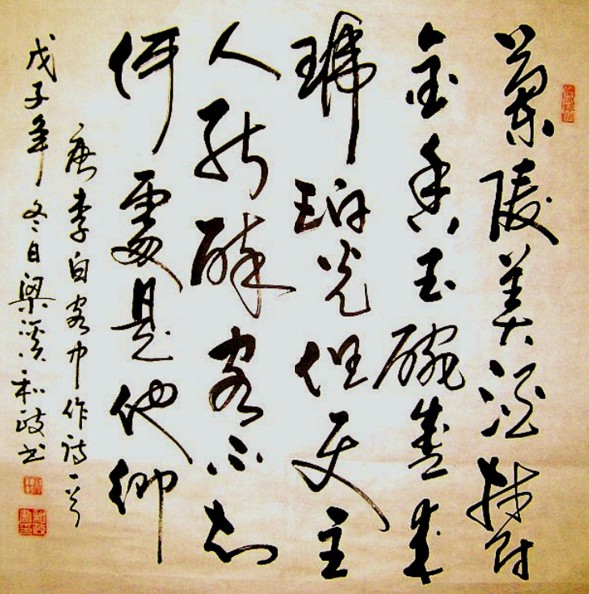 蘭陵美酒鬱
金香玉碗盛来
琥珀光但使主
人能醉客不知
何處是他鄉
唐李白客中作诗一首
戊子年冬日梁溪和政书